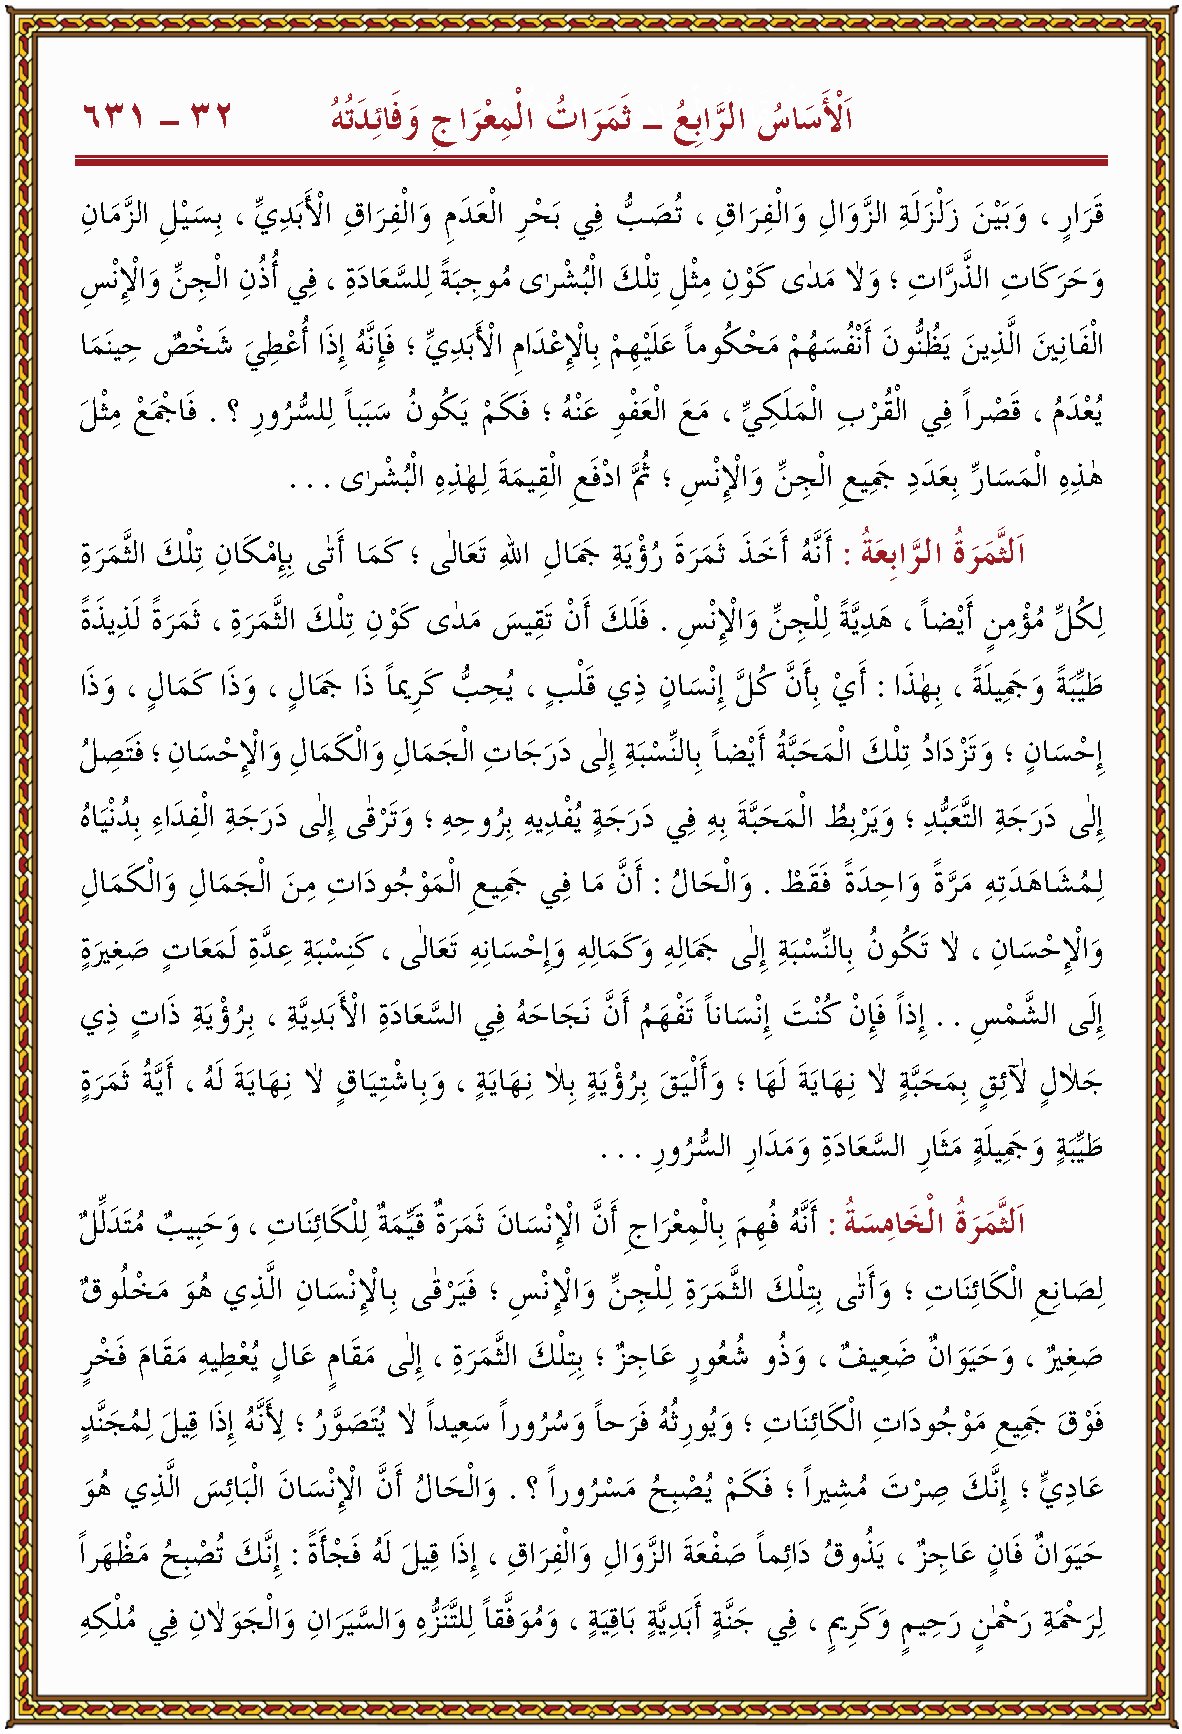 اَلْأَسَاسُ الرَّابِعُ ــ ثَمَرَاتُ الْمِعْرَاجِ وَفَائِدَتُهُ ٣٢ ــ ٦٣١
قَرَارٍ ، وَبَيْنَ زَلْزَلَةِ الزَّوَالِ وَالْفِرَاقِ ، تُصَبُّ فِي بَحْرِ الْعَدَمِ وَالْفِرَاقِ الْأَبَدِيِّ ، بِسَيْلِ الزَّمَانِ
وَحَرَكَاتِ الذَّرَّاتِ ؛ وَلاٰ مَدٰى كَوْنِ مِثْلِ تِلْكَ الْبُشْرٰى مُوجِبَةً لِلسَّعَادَةِ ، فِي أُذُنِ الْجِنِّ وَالْإِنْسِ
الْفَانِينَ الَّذِينَ يَظُنُّونَ أَنْفُسَهُمْ مَحْكُوماً عَلَيْهِمْ بِالْإِعْدَامِ الْأَبَدِيِّ ؛ فَإِنَّهُ إِذَا أُعْطِيَ شَخْصٌ حِينَمَا
يُعْدَمُ ، قَصْراً فِي الْقُرْبِ الْمَلَكِيِّ ، مَعَ الْعَفْوِ عَنْهُ ؛ فَكَمْ يَكُونُ سَبَباً لِلسُّرُورِ ؟ . فَاجْمَعْ مِثْلَ
هٰذِهِ الْمَسَارِّ بِعَدَدِ جَمِيعِ الْجِنِّ وَالْإِنْسِ ؛ ثُمَّ ادْفَعِ الْقِيمَةَ لِهٰذِهِ الْبُشْرٰى . . .
اَلثَّمَرَةُ الرَّابِعَةُ : أَنَّهُ أَخَذَ ثَمَرَةَ رُؤْيَةِ جَمَالِ اللهِ تَعَالٰى ؛ كَمَا أَتٰى بِإِمْكَانِ تِلْكَ الثَّمَرَةِ
لِكُلِّ مُؤْمِنٍ أَيْضاً ، هَدِيَّةً لِلْجِنِّ وَالْإِنْسِ . فَلَكَ أَنْ تَقِيسَ مَدٰى كَوْنِ تِلْكَ الثَّمَرَةِ ، ثَمَرَةً لَذِيذَةً
طَيِّبَةً وَجَمِيلَةً ، بِهٰذَا : أَيْ بِأَنَّ كُلَّ إِنْسَانٍ ذِي قَلْبٍ ، يُحِبُّ كَرِيماً ذَا جَمَالٍ ، وَذَا كَمَالٍ ، وَذَا
إِحْسَانٍ ؛ وَتَزْدَادُ تِلْكَ الْمَحَبَّةُ أَيْضاً بِالنِّسْبَةِ إِلٰى دَرَجَاتِ الْجَمَالِ وَالْكَمَالِ وَالْإِحْسَانِ ؛ فَتَصِلُ
إِلٰى دَرَجَةِ التَّعَبُّدِ ؛ وَيَرْبِطُ الْمَحَبَّةَ بِهِ فِي دَرَجَةٍ يُفْدِيهِ بِرُوحِهِ ؛ وَتَرْقٰى إِلٰى دَرَجَةِ الْفِدَاءِ بِدُنْيَاهُ
لِمُشَاهَدَتِهِ مَرَّةً وَاحِدَةً فَقَطْ . وَالْحَالُ : أَنَّ مَا فِي جَمِيعِ الْمَوْجُودَاتِ مِنَ الْجَمَالِ وَالْكَمَالِ
وَالْإِحْسَانِ ، لاٰ تَكُونُ بِالنِّسْبَةِ إِلٰى جَمَالِهِ وَكَمَالِهِ وَإِحْسَانِهِ تَعَالٰى ، كَنِسْبَةِ عِدَّةِ لَمَعَاتٍ صَغِيرَةٍ
إِلَى الشَّمْسِ . . إِذاً فَإِنْ كُنْتَ إِنْسَاناً تَفْهَمُ أَنَّ نَجَاحَهُ فِي السَّعَادَةِ الْأَبَدِيَّةِ ، بِرُؤْيَةِ ذَاتٍ ذِي
جَلاٰلٍ لاٰئِقٍ بِمَحَبَّةٍ لاٰ نِهَايَةَ لَهَا ؛ وَأَلْيَقَ بِرُؤْيَةٍ بِلاٰ نِهَايَةٍ ، وَبِاشْتِيَاقٍ لاٰ نِهَايَةَ لَهُ ، أَيَّةُ ثَمَرَةٍ
طَيِّبَةٍ وَجَمِيلَةٍ مَثَارِ السَّعَادَةِ وَمَدَارِ السُّرُورِ . . .
اَلثَّمَرَةُ الْخَامِسَةُ : أَنَّهُ فُهِمَ بِالْمِعْرَاجِ أَنَّ الْإِنْسَانَ ثَمَرَةٌ قَيِّمَةٌ لِلْكَائِنَاتِ ، وَحَبِيبٌ مُتَدَلِّلٌ
لِصَانِعِ الْكَائِنَاتِ ؛ وَأَتٰى بِتِلْكَ الثَّمَرَةِ لِلْجِنِّ وَالْإِنْسِ ؛ فَيَرْقٰى بِالْإِنْسَانِ الَّذِي هُوَ مَخْلُوقٌ
صَغِيرٌ ، وَحَيَوَانٌ ضَعِيفٌ ، وَذُو شُعُورٍ عَاجِزٌ ؛ بِتِلْكَ الثَّمَرَةِ ، إِلٰى مَقَامٍ عَالٍ يُعْطِيهِ مَقَامَ فَخْرٍ
فَوْقَ جَمِيعِ مَوْجُودَاتِ الْكَائِنَاتِ ؛ وَيُورِثُهُ فَرَحاً وَسُرُوراً سَعِيداً لاٰ يُتَصَوَّرُ ؛ لِأَنَّهُ إِذَا قِيلَ لِمُجَنَّدٍ
عَادِيٍّ ؛ إِنَّكَ صِرْتَ مُشِيراً ؛ فَكَمْ يُصْبِحُ مَسْرُوراً ؟ . وَالْحَالُ أَنَّ الْإِنْسَانَ الْبَائِسَ الَّذِي هُوَ
حَيَوَانٌ فَانٍ عَاجِزٌ ، يَذُوقُ دَائِماً صَفْعَةَ الزَّوَالِ وَالْفِرَاقِ ، إِذَا قِيلَ لَهُ فَجْأَةً : إِنَّكَ تُصْبِحُ مَظْهَراً
لِرَحْمَةِ رَحْمٰنٍ رَحِيمٍ وَكَرِيمٍ ، فِي جَنَّةٍ أَبَدِيَّةٍ بَاقِيَةٍ ، وَمُوَفَّقاً لِلتَّنَزُّهِ وَالسَّيَرَانِ وَالْجَوَلاٰنِ فِي مُلْكِهِ